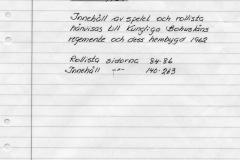 Innehåll av spelet och rollista
hänvisas till Kungliga Bohusläns
regemente och dess hembygd 1962
Rollista sidorna 84-86
Innehåll -"- 140-263